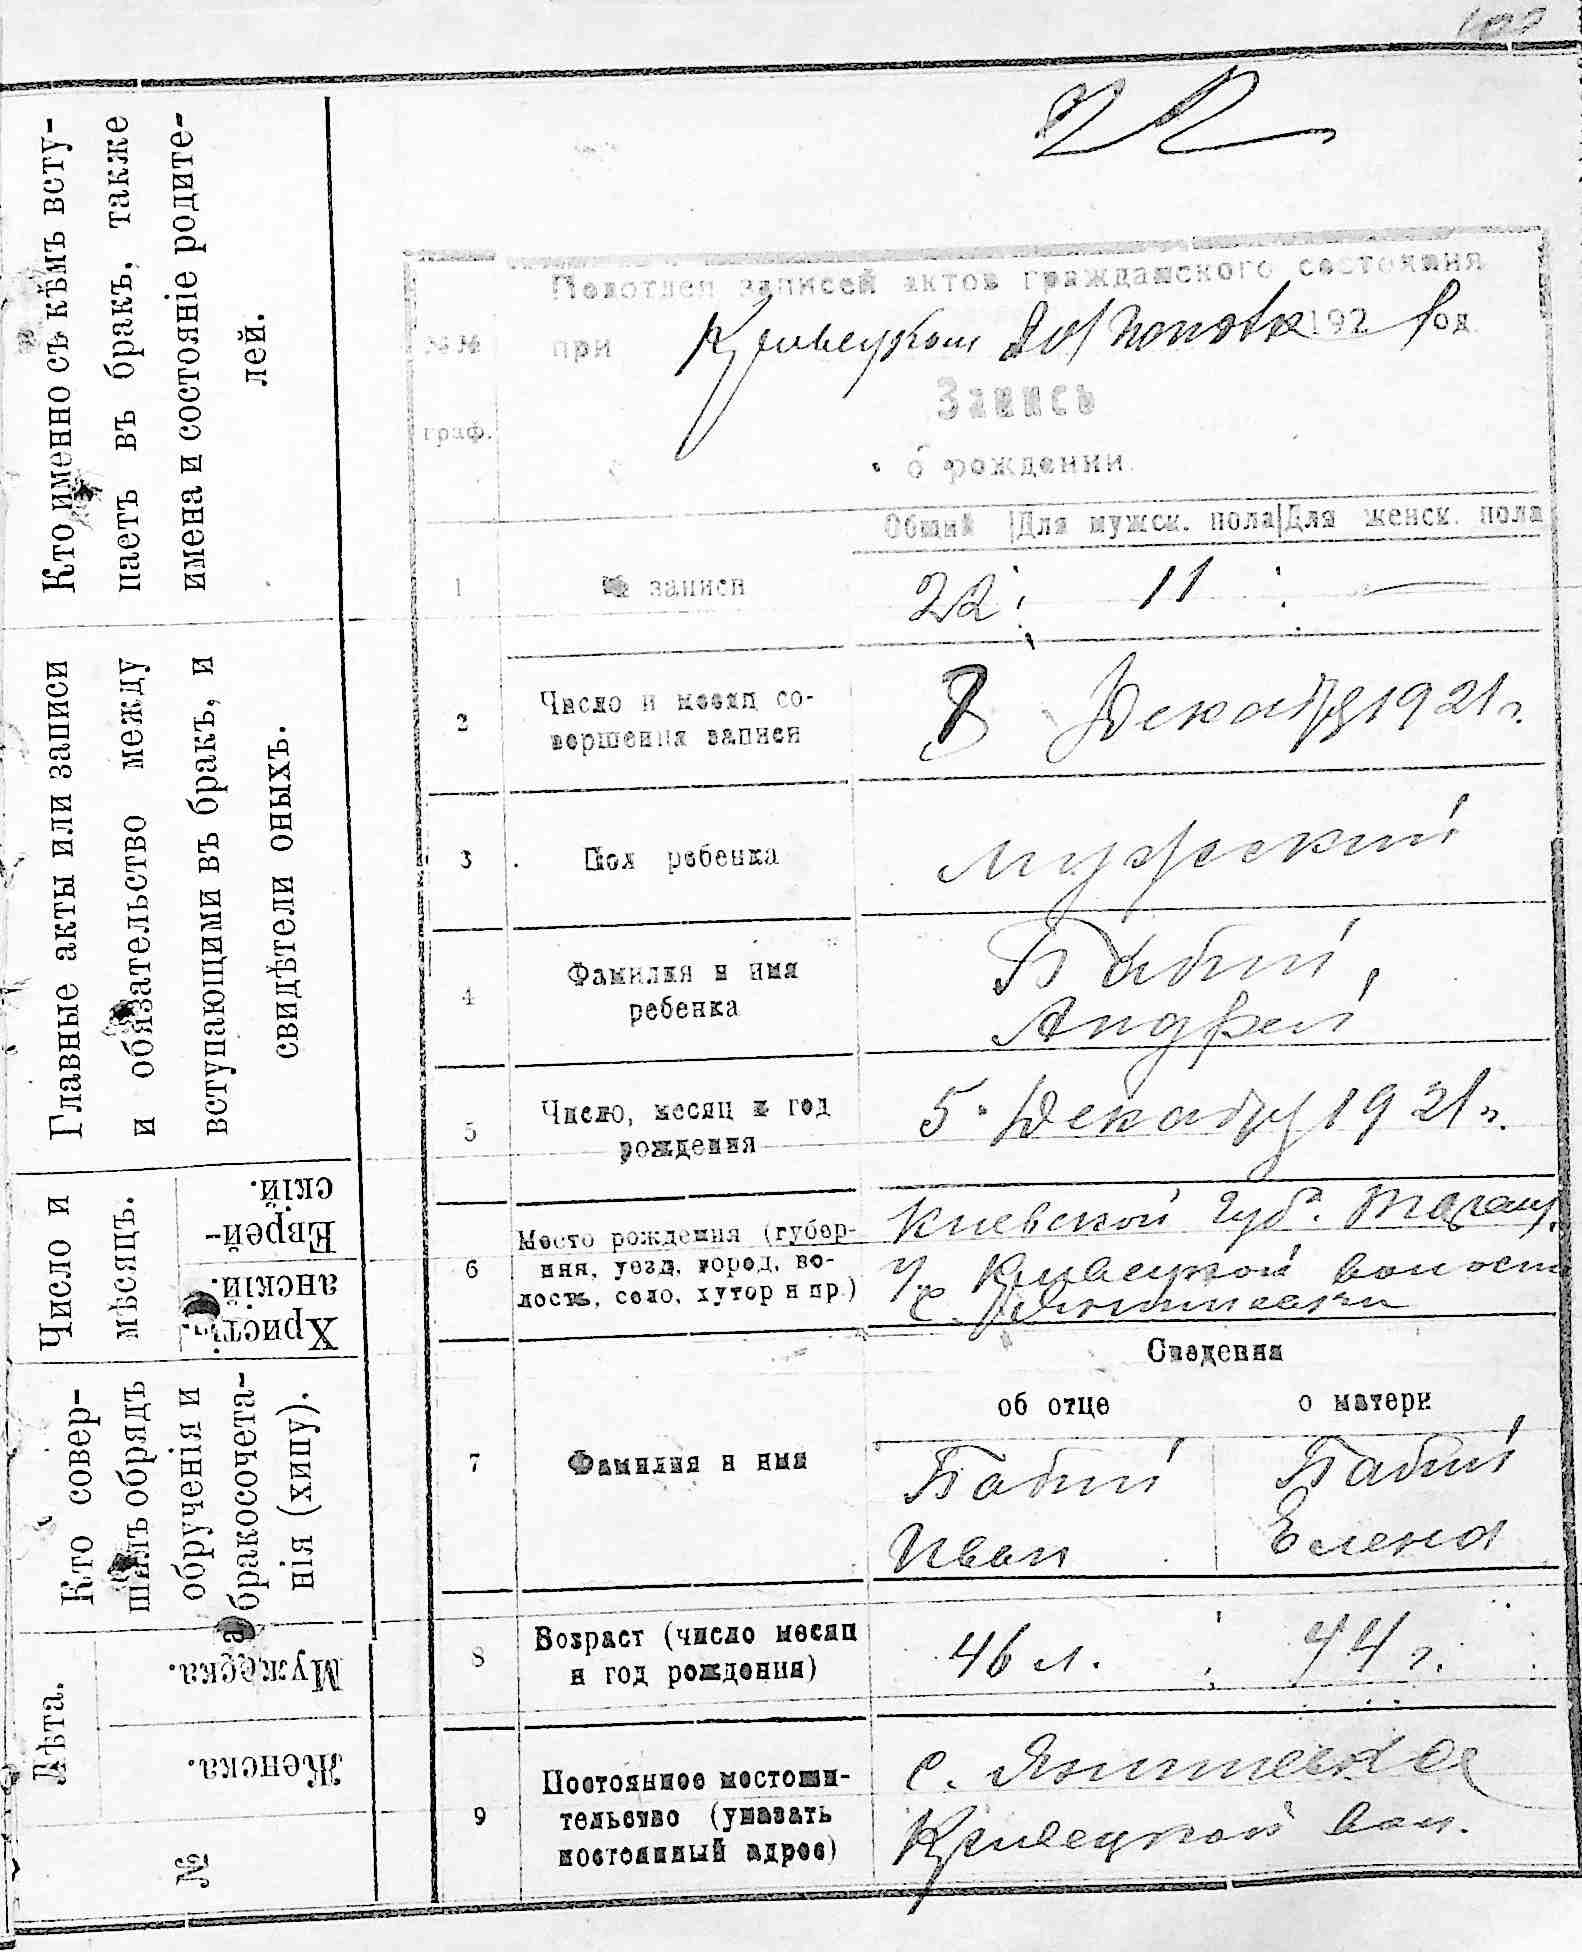 22
Подотдел записей актов гражданского состояния
№№ при Кривецком 192 1 год
граф.
Запись
о рождении.
Общий Для мужск. пола Для женск. пола
1 № записи 22 11 —
2 Число и месяц со-
вершения записи
8 Декабря 1921 г.
3 Пол ребенка мужеский
4 Фамилия и имя
ребенка
Бабий,
Андрей
5 Число, месяц и год
рождения
5 Декабря 1921 г.
6 Место рождения (губер-
ния, уезд, город, во-
лость, село, хутор и пр.)
Киевской губ. Таращ.
у. Кривецкой волости
с. Янишевки
Сведения
об отце о матери
7 Фамилия и имя
Бабий Бабий
Иван Елена
8 Возраст (число месяц
и год рождения)
46 л. 44 г.
9 Постоянное местожи-
тельство (указать
постоянный адрес)
с. Янишевка
Кривецкой вол.
Кто именно съ кѣмъ всту-
паетъ въ бракъ, также
имена и состояніе родите-
лей.
Главные акты или записи
и обязательство между
вступающими въ бракъ, и
свидѣтели оныхъ.
Число и
мѣсяцъ.
Еврей-
скій.
Христі-
анскій.
Кто совер-
шилъ обрядъ
обрученія и
бракосочета-
нія (хипу).
Лѣта.
Мужеска.
Женска.
№